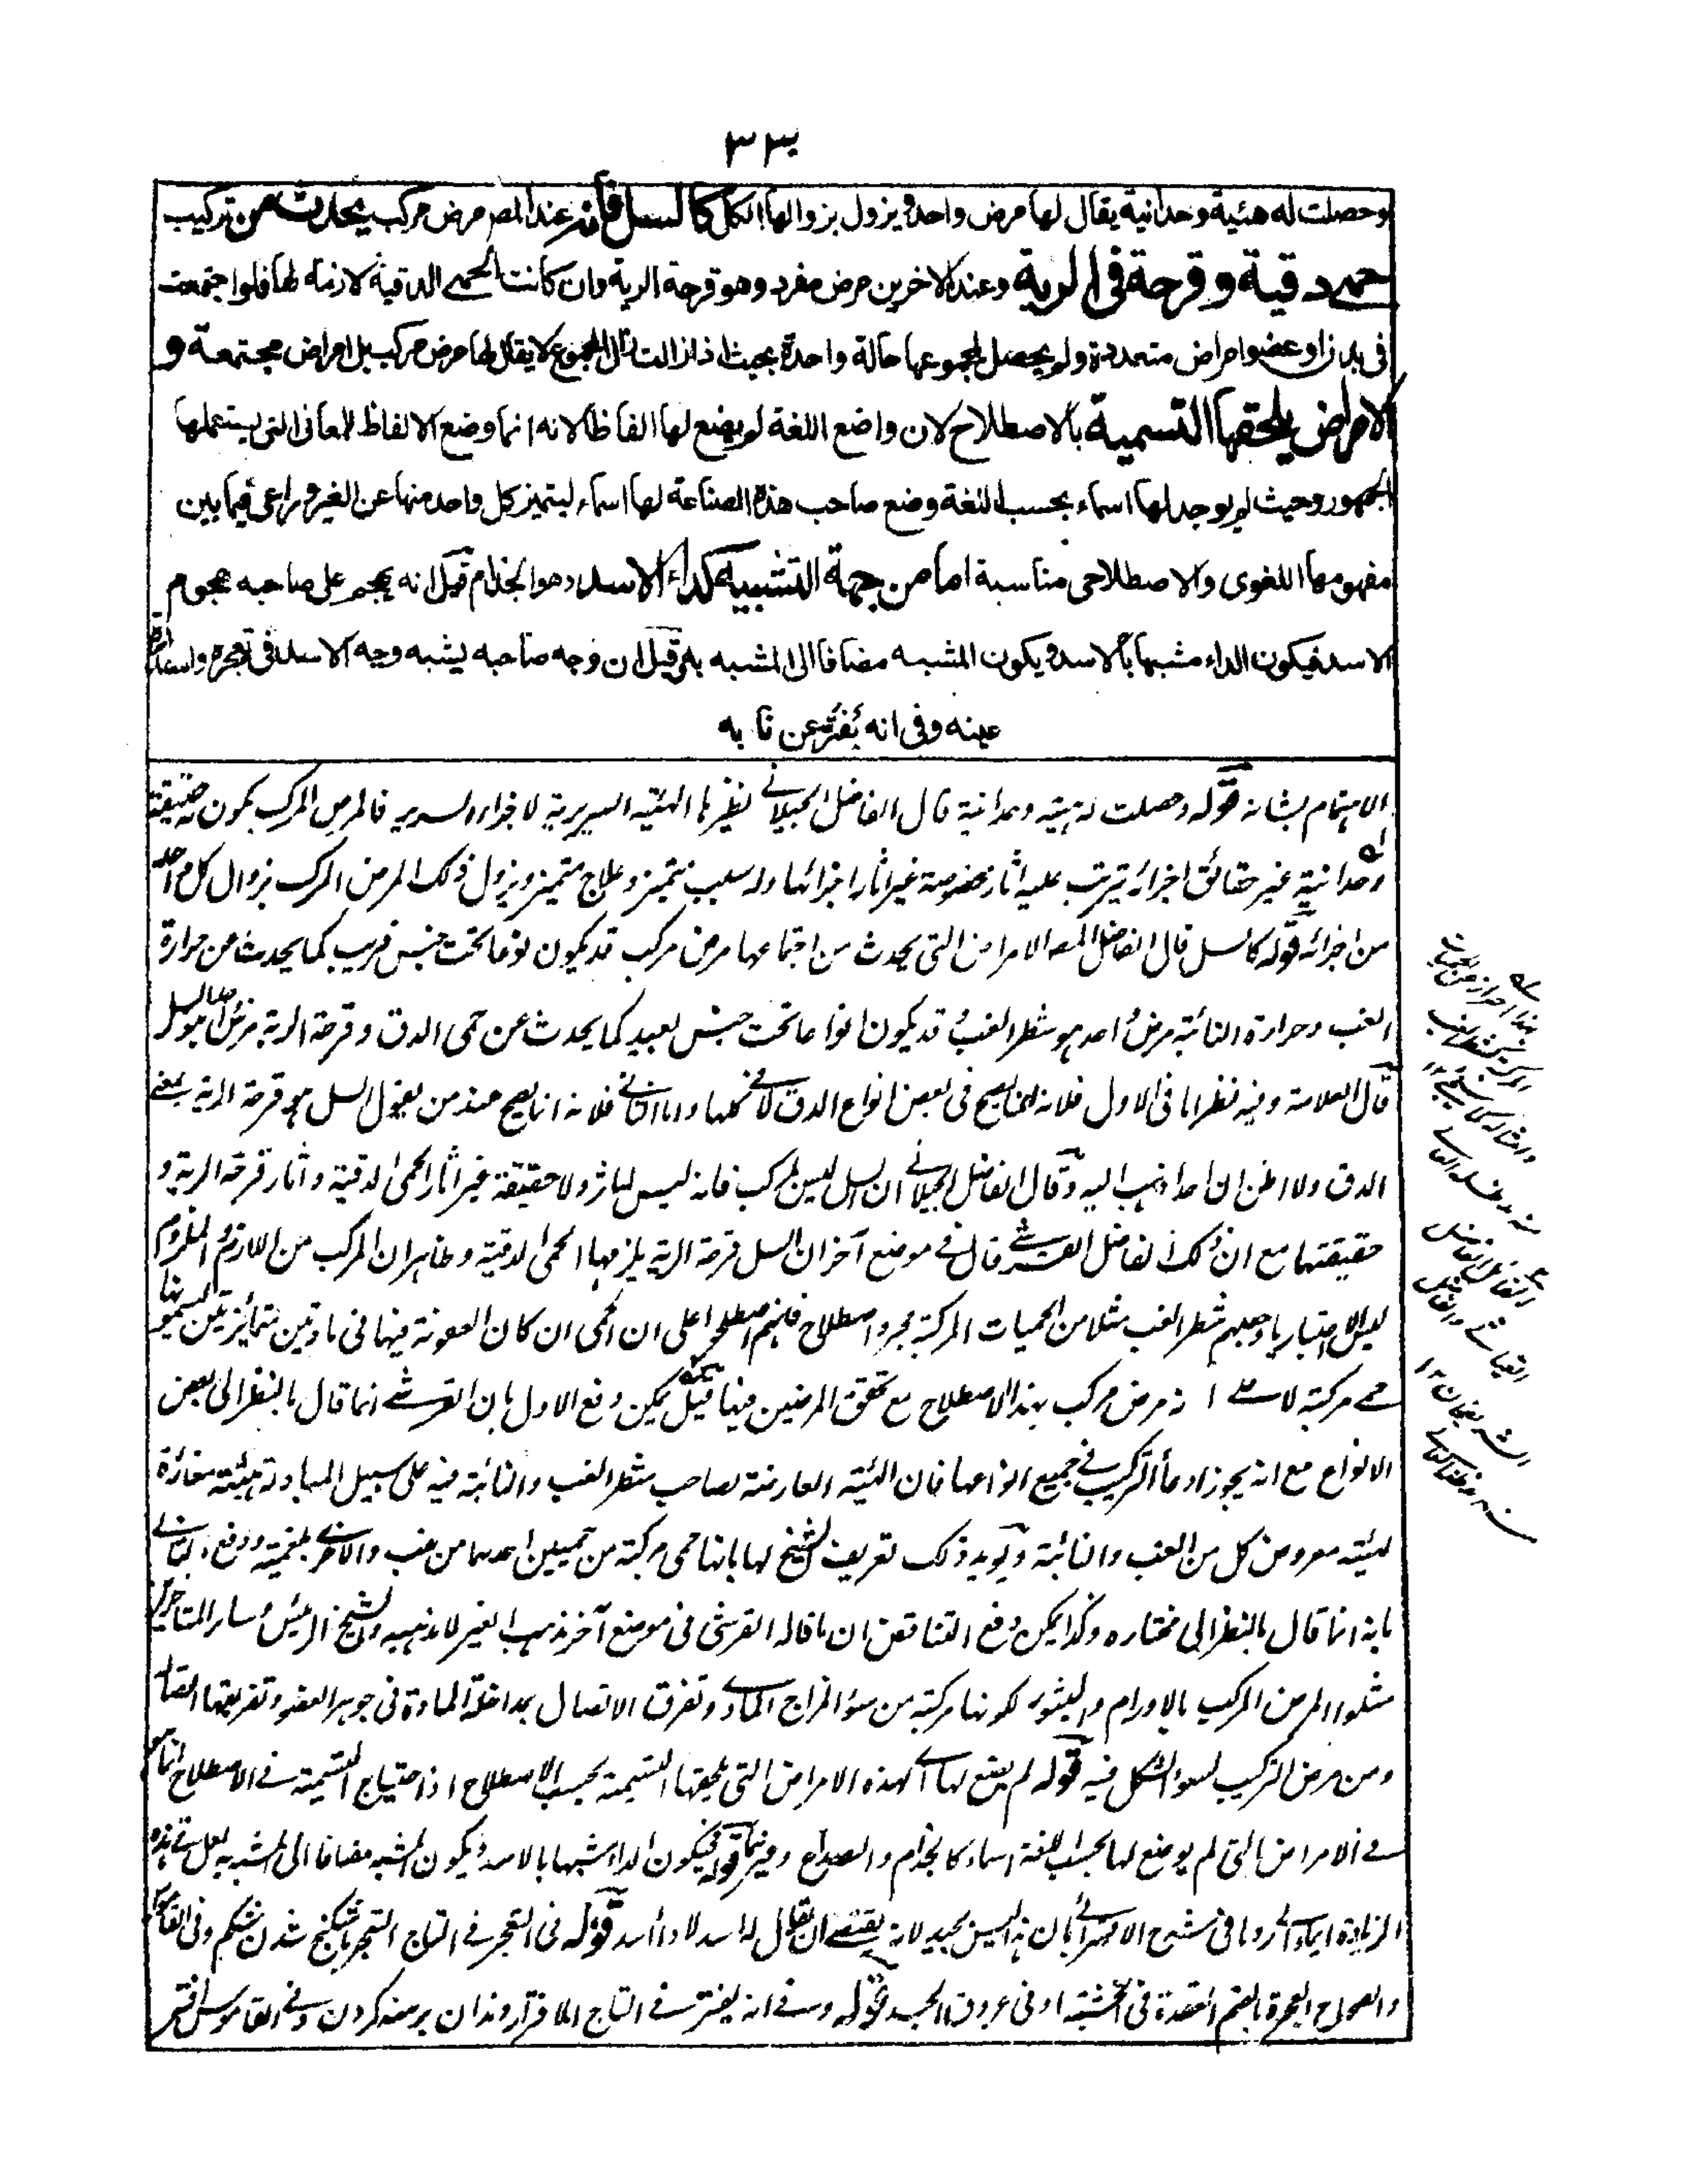 ٣٣٠
وحصلت له هيئة وحدانية يقال لها مرض واحد ويزول بزوالها الكل كالسل فانه عند المص مرض مركب يحدث من تركيب
حمى دقية وقرحة فى الرية وعند الاخرين مرض مفرد وهو قرحة الرية وان كانت الحمى الدقية لازمة لها فلو اجتمعت
فى بدن او عضو امراض متعددة ولم يحصل لمجموعها حالة واحدة بحيث اذا زالت زال المجموع لا يقال لها مرض مركب بل امراض مجتمعة و
الامراض يلحقها التسمية بالاصطلاح لان واضع اللغة لم يضع لها الفاظا لانه انما وضع الالفاظ للمعانى التى يستعملها
الجمهور وحيث لم يوجد لها اسماء بحسب اللغة وضع صاحب هذه الصناعة لها اسماء ليتميز كل واحد منها عن الغير وراعى فيما بين
مفهومها اللغوى والاصطلاحى مناسبة اما من جهة التشبيه كداء الاسد وهو الجذام قيل انه يهجم على صاحبه هجوم
الاسد فيكون الداء مشبها بالاسد ويكون المشبه مضافا الى المشبه به قيل ان وجه صاحبه يشبه وجه الاسد فى تعجره
عينه وفى انه يفتر عن نا به
الاهتمام بشانه قوله وحصلت له هيئة وحدانية قال الفاضل الجيلانى نظيرها الهيئة السريرية لاجزاء السرير فالمرض المركب يكون حقيقة
وحدانية غير حقائق اجزائه يترتب عليه اثار مخصوصة غير اثار اجزائها وله سبب متميز وعلاج متميز ويزول ذلك المرض المركب بزوال كل واحد
من اجزائه قوله كالسل قال الفاضل المص الامراض التى يحدث من اجتماعها مرض مركب قد يكون نوعا تحت جنس قريب كما يحدث عن حرارة
الغب وحرارة النائبة مرض واحد هو شطر الغب وقد يكون انواعا تحت جنس بعيد كما يحدث عن حمى الدق وقرحة الرية مرض هو السل
قال العلامة وفيه نظر اما فى الاول فلانه انما يصح فى بعض انواع الدق لا فى كلها واما الثانى فلانه انما يصح عند من يقول السل هو قرحة الرية بمعنى
الدق ولا اظن ان احدا ذهب اليه وقال الفاضل الجيلانى ان السل ليس بمركب فانه ليس له اثر ولا حقيقة غير اثار الحمى الدقية واثار قرحة الرية و
حقيقتها مع ان ذلك الفاضل القرشى قال فى موضع آخر ان السل قرحة الرية يلزمها الحمى الدقية وظاهر ان المركب من اللازم والملزوم
ليس الا اعتباريا وجعلهم شطر الغب مثلا من الحميات المركبة مجرد اصطلاح فانهم اصطلحوا على ان الحمى ان كان العفونة فيها فى مادتين متمائزتين
حمى مركبة لا على انه مرض مركب بهذا الاصطلاح مع تحقق المرضين فيها قيل يمكن دفع الاول بان القرشى انما قال بالنظر الى بعض
الانواع مع انه يجوز ادعاء التركيب فى جميع انواعها فان الهيئة العارضة لصاحب شطر الغب والنائبة فيه على سبيل المبادلة هيئة مغائرة
لهيئة معروض كل من الغب والنائبة ويويد ذلك تعريف الشيخ لها بانها حمى مركبة من حميين احدهما من غب والاخرى بلغمية ودفع الثانى
بانه انما قال بالنظر الى مختاره وكذا يمكن دفع التناقض ان ما قاله القرشى فى موضع آخر مذهب الغير لا مذهبه والشيخ الرئيس وسائر المتاخرين
مثلوا المرض المركب بالاورام والبثور لكونها مركبة من سوء المزاج المادى وتفرق الاتصال بمداخلة المادة فى جوهر العضو وتفريقها
ومن مرض التركيب لسوء الشكل فيه قوله لم يضع لها اى لهذه الامراض التى يلحقها التسمية بحسب الاصطلاح اذ احتياج التسمية فى الاصطلاح
فى الامراض التى لم يوضع لها بحسب اللغة اسماء كالجذام والصداع وغيرهما قوله فيكون الداء مشبها بالاسد ويكون المشبه مضافا الى المشبه به لعل فى هذه
الزيادة ايماء الى رد ما فى شرح الاقسرائى بان هذا ليس بجيد لانه يقتضى ان يقال له اسد لا داء اسد قوله فى التعجر فى التاج التعجر باشكنج شدن شكم وفى القاموس
والصحاح العجرة بالضم العقدة فى الخشبة او فى عروق الجسد قوله وفى انه يفتر فى التاج الافترار دندان برهنه كردن وفى القاموس افتر